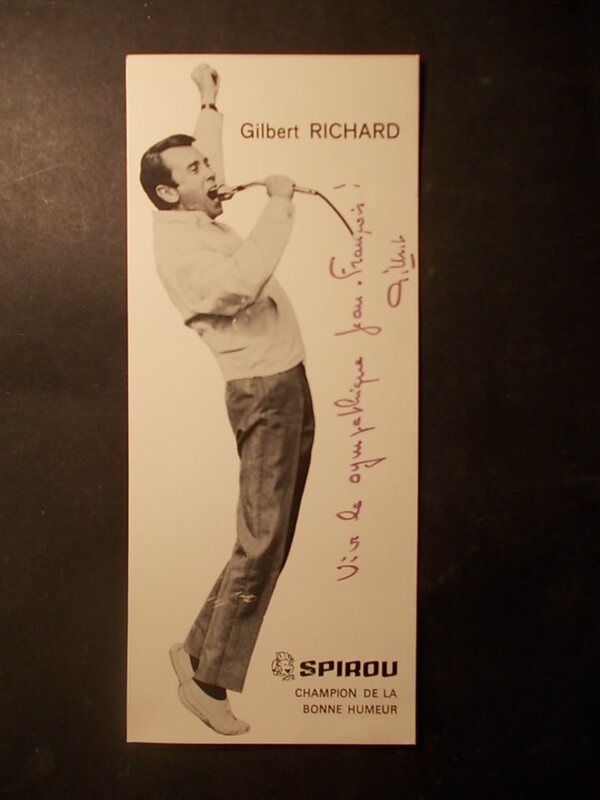 Gilbert RICHARD
Vive le sympathique Jean-François !
Gilbert
SPIROU
CHAMPION DE LA
BONNE HUMEUR